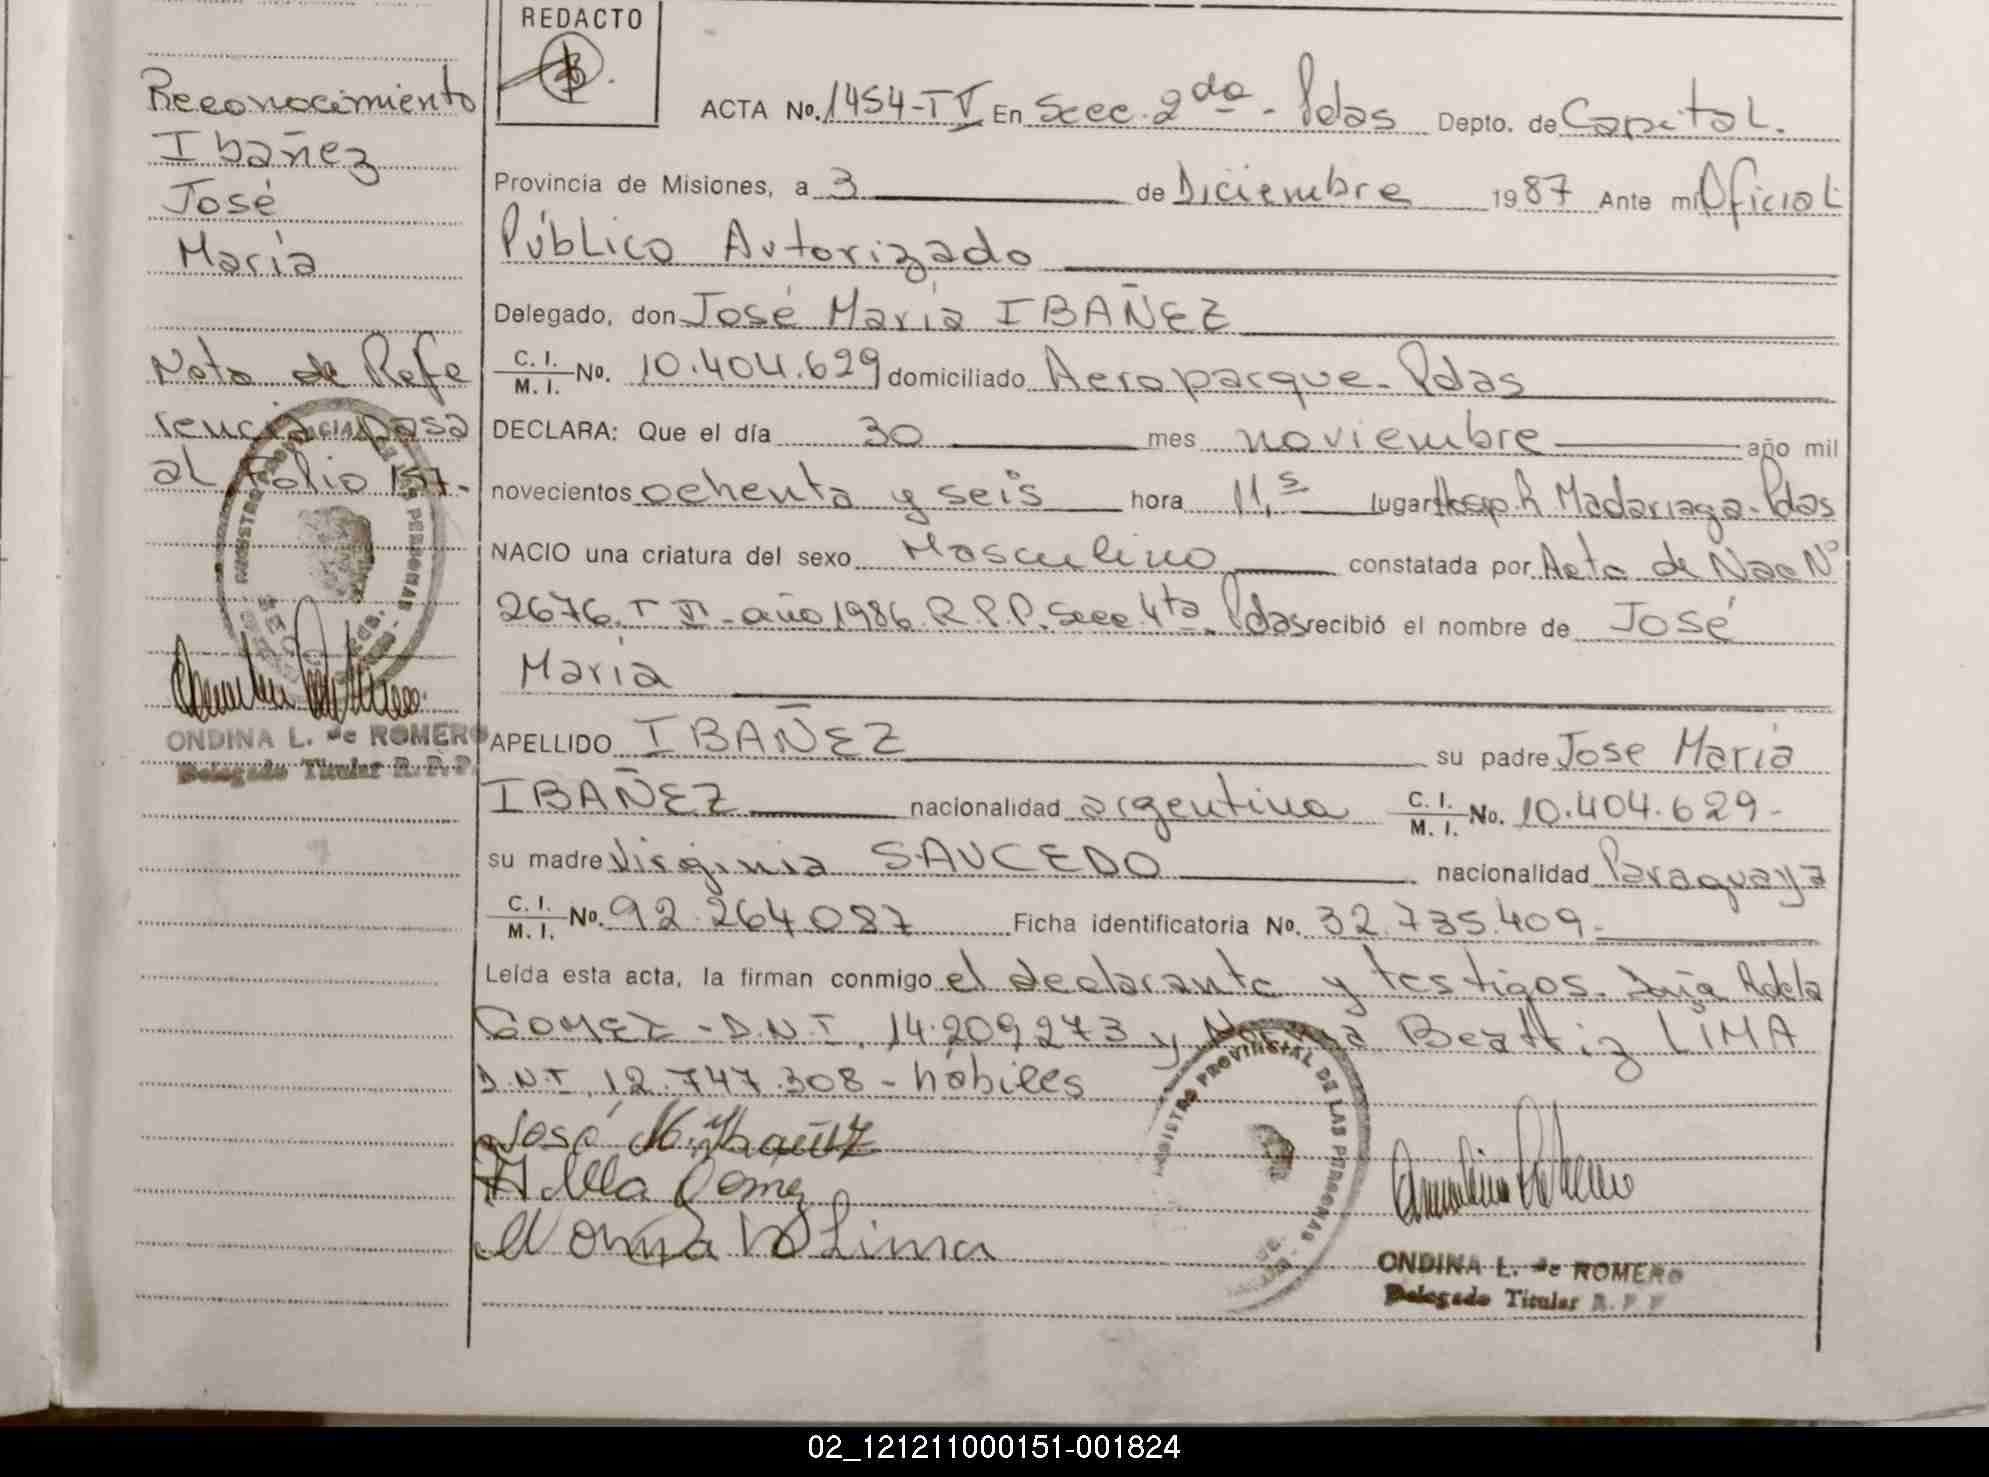 REDACTO
ACTA No. 1454-T V En Secc. 2da - Pdas Depto. de Capital.
Provincia de Misiones, a 3 de Diciembre 1987 Ante mi Oficial
Público Autorizado
Delegado, don José María IBAÑEZ
C. I. / M. I. No. 10.404.629 domiciliado Aeroparque - Pdas
DECLARA: Que el día 30 mes noviembre año mil
novecientos ochenta y seis hora 11,s lugar Hosp. R Madariaga - Pdas
NACIO una criatura del sexo Masculino constatada por Acta de Nac Nº
2676. T VI - año 1986. R.P.P. Secc. 4ta. Pdas recibió el nombre de José
María
APELLIDO IBAÑEZ su padre Jose María
IBAÑEZ nacionalidad argentina C. I. / M. I. No. 10.404.629-
su madre Virginia SAUCEDO nacionalidad Paraguaya
C. I. / M. I. No. 92.264.087 Ficha identificatoria No. 32.735.409-
Leída esta acta, la firman conmigo el declarante y testigos - Adela
GOMEZ - D.N.I. 14.209.273 y Norma Beatriz LIMA
D.N.I. 12.747.308 - hábiles
José M. Ibañez
Adela Gomez
Norma B Lima
REGISTRO PROVINCIAL DE LAS PERSONAS
ONDINA L. de ROMERO
Delegado Titular R. P. P
Reconocimiento
Ibañez
José
María
Nota de Refe
rencia pasa
al Folio 157-
ONDINA L. de ROMERO
Delegado Titular R. P. P.
02_121211000151-001824